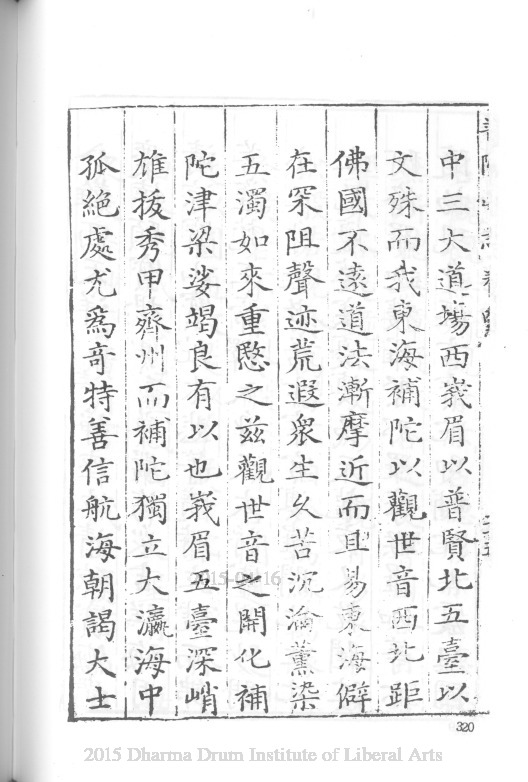 中三大道場西峩眉以普賢北五臺以
文殊而我東海補陀以觀世音西北距
佛國不遠道法漸摩近而且易東海僻
在罙阻聲迹荒遐衆生久苦沉淪薰染
五濁如來重愍之兹觀世音之開化補
陀津梁娑竭良有以也峩眉五臺深峭
雄拔秀甲齊州而補陀獨立大瀛海中
孤絕處尤爲奇特善信航海朝謁大士
320
2015-04-16
2015 Dharma Drum Institute of Liberal Arts